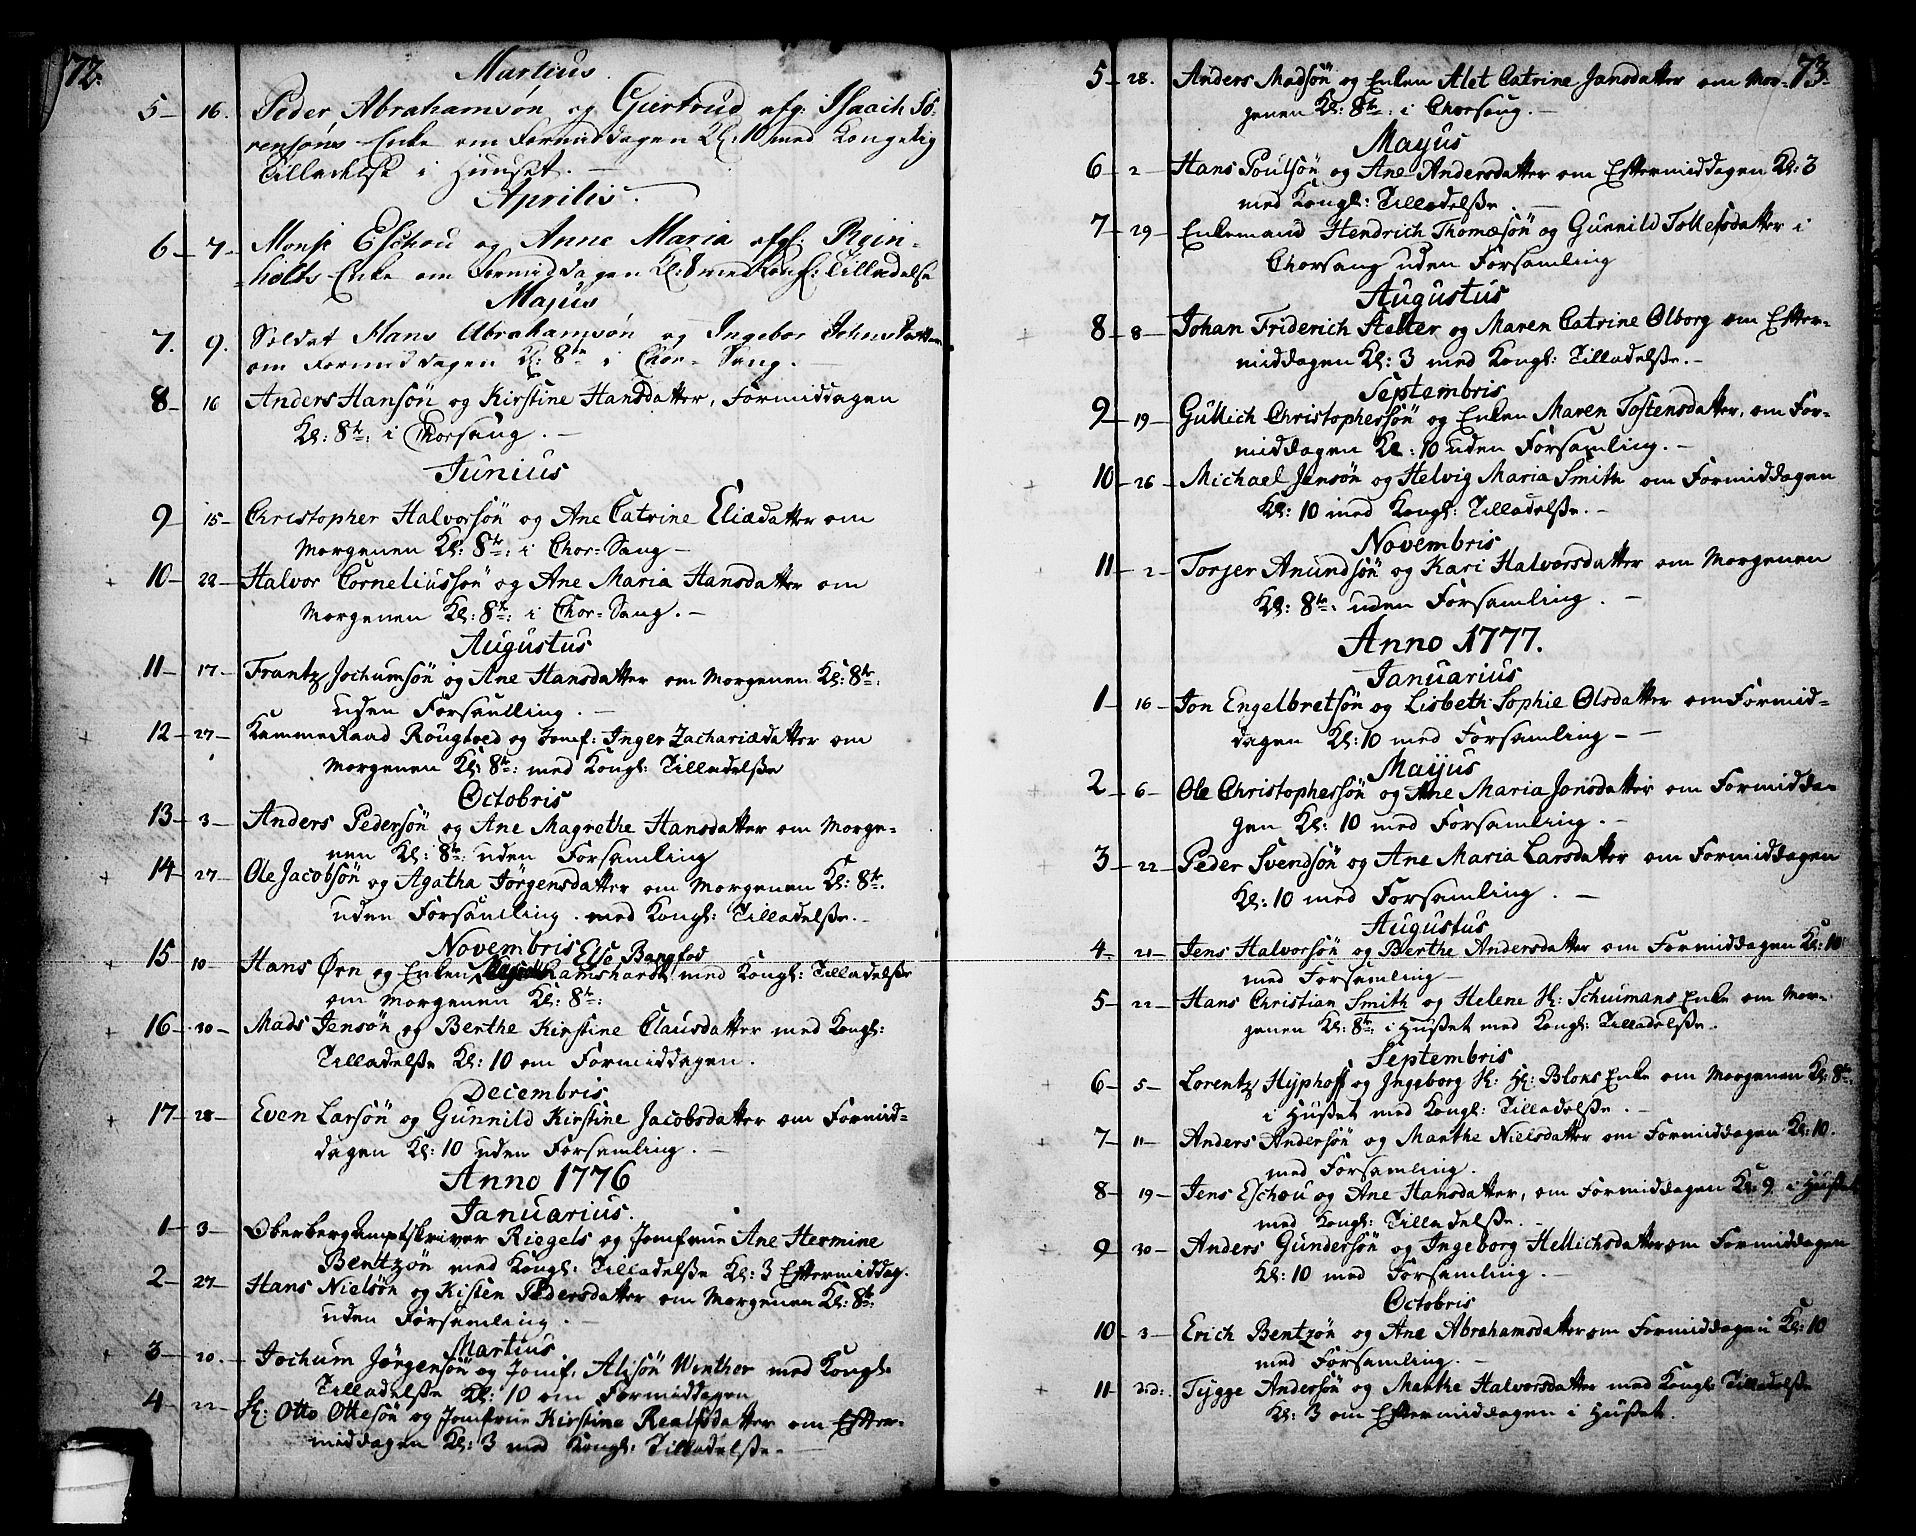 72.
Martius.
5 - 16. Peder Abrahamsøn og Giertrud afg. Isaach Sö-
rensøns Enke om Formiddagen Kl: 10 med Kongelig
Tilladelse i Huuset. -
Aprilis.
6 - 7 - Monsr Eschou og Anne Maria afgl. Rein-
holts Enke om Formiddagen Kl: 8 med Kongl: Tilladelse
Majus
7. 9. Soldat Hans Abrahamsøn og Ingebor Johns Datter
om Formiddagen Kl: 8te i Chor-Sang. -
8 - 16 Anders Hansøn og Kirstine Hansdatter, Formiddagen
Kl: 8te: i Chorsang. -
Junius
9 - 15 - Christopher Halvorsøn og Ane Catrine Eliædatter om
Morgenen Kl: 8te: i Chor-Sang -
10 - 22 - Halvor Corneliussøn og Ane Maria Hansdatter om
Morgenen Kl: 8te: i Chor-Sang. -
Augustus
11 - 17 - Frantz Jochumsøn og Ane Hansdatter om Morgenen Kl: 8te:
uden Forsamling. -
12 - 27 - KammeRaad Rougtved og Jomf: Inger Zachariædatter om
Morgenen Kl: 8te: med Kongl: Tilladelsse
Octobris
13 - 3 - Anders Pedersøn og Ane Magrethe Hansdatter om Morge-
nen Kl: 8te: uden Forsamling
14 - 27 - Ole Jacobsøn og Agatha Jørgensdatter om Morgenen Kl: 8te.
uden Forsamling. med Kongl: Tilladelsse. -
Novembris
15 10 - Hans Ørn og Enken Else Bangfod Ramshardt med Kongl: Tilladelsse
om Morgenen Kl: 8te:
16 - 20 - Mads Jensøn og Berthe Kirstine Clausdatter med Kongl:
Tilladelsse Kl: 10 om Formiddagen.
Decembris
17 - 28 - Even Larsøn og Gunnild Kirstine Jacobsdatter om Formid-
dagen Kl: 10 uden Forsamling. -
Anno 1776
Januarius.
1 - 3 - Oberbergamptskriver Riegels og Jomfrue Ane Hermine
Bentzøn med Kongl: Tilladelsse Kl: 3 Eftermiddag.
2 - 27 - Hans Nielsøn og Kisten Pedersdatter om Morgenen Kl: 8te:
uden Forsamling. -
Martius
3 - 20. - Jochum Jørgensøn og Jomf. Alisøn Winther med Kongl:
Tilladelsse Kl: 10 om Formiddagen
4 - 22 - Hr: Otto Ottesøn og Jomfrue Kirstine Realfsdatter om Efter-
middagen Kl: 3 med Kongl: Tilladelsse. -
73.
5 - 28. Anders Madsøn og Enken Alet Catrine Jansdatter om Mor-
genen Kl: 8te: i Chorsang. -
Majus
6 - 2 - Hans Poulsøn og Ane Andersdatter om Eftermiddagen Kl: 3
med Kongl: Tilladelsse. -
7 - 29 - Enkemand Hendrich Thomæsøn og Gunnild Tollefsdatter i
Chorsang uden Forsamling
Augustus
8 - 8 - Johan Friderich Stelter og Maren Catrine Olborg om Efter-
middagen Kl: 3 med Kongl: Tilladelsse. -
Septembris
9 - 19 - Gullich Christophersøn og Enken Maren Tostensdatter, om For-
middagen Kl: 10 uden Forsamling. -
10 - 26 - Michael Jensøn og Helvig Maria Smith om Formiddagen
Kl: 10 med Kongl: Tilladelsse. -
Novembris
11 - 2 - Torjer Anundsøn og Kari Halvorsdatter om Morgenen
Kl: 8te: uden Forsamling. -
Anno 1777.
Januarius
1 - 16 - Jon Engelbretsøn og Lisbeth Sophie Olsdatter om Formid-
dagen Kl: 10 med Forsamling -
Majus
2 - 6 - Ole Christophersøn og Ane Maria Jonsdatter om Formidda-
gen Kl: 10 med Forsamling. -
3 - 22 - Peder Svendsøn og Ane Maria Larsdatter om Formiddagen
Kl: 10 med Forsamling. -
Augustus
4 - 21 - Jens Halvorsøn og Berthe Andersdatter om Formiddagen Kl: 10
med Forsamling -
5 - 22 - Hans Christian Smith og Helene Sl: Schuimans Enke om Mor-
genen Kl: 8te: i Husset med Kongl: Tilladelsse. -
Septembris
6 - 5 - Lorentz Hyphoff og Ingeborg Sl: Hr: Bloks Enke om Morgenen Kl: 8te:
i Husset med Kongl: Tilladelsse. -
7 - 11 - Anders Andersøn og Marthe Nielsdatter om Formiddagen Kl: 10.
med Forsamling.
8 - 19 - Jens Eschou og Ane Hansdatter, om Formiddagen Kl: 9 i Husset
med Kongl: Tilladelsse. -
9 - 30 - Anders Gundersøn og Ingeborg Hellichsdatter om Formiddagen
Kl: 10 med Forsamling. -
Octobris
10 - 3 - Erich Bentzøn og Ane Abrahamsdatter om Formiddagen Kl: 10
med Forsamling. -
11 - Tygge Andersøn og Marthe Halvorsdatter med Kongl: Tilladelsse
Kl: 3 om Eftermiddagen i Husset.